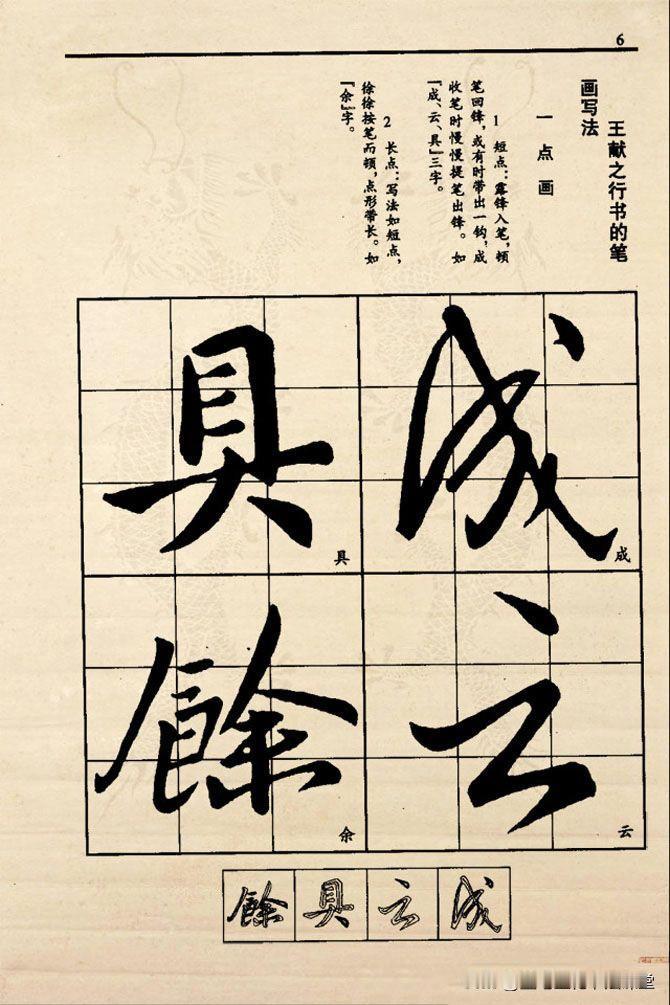 6
王献之行书的笔
画写法
一点画
1 短点：露锋入笔，顿
笔回锋，或有时带出一钩，成
收笔时慢慢提笔出锋。如
“成、云、具”三字。
2 长点：写法如短点，
徐徐按笔而顿，点形带长。如
“余”字。
成
成
云
云
具
具
餘
余
成
云
具
餘